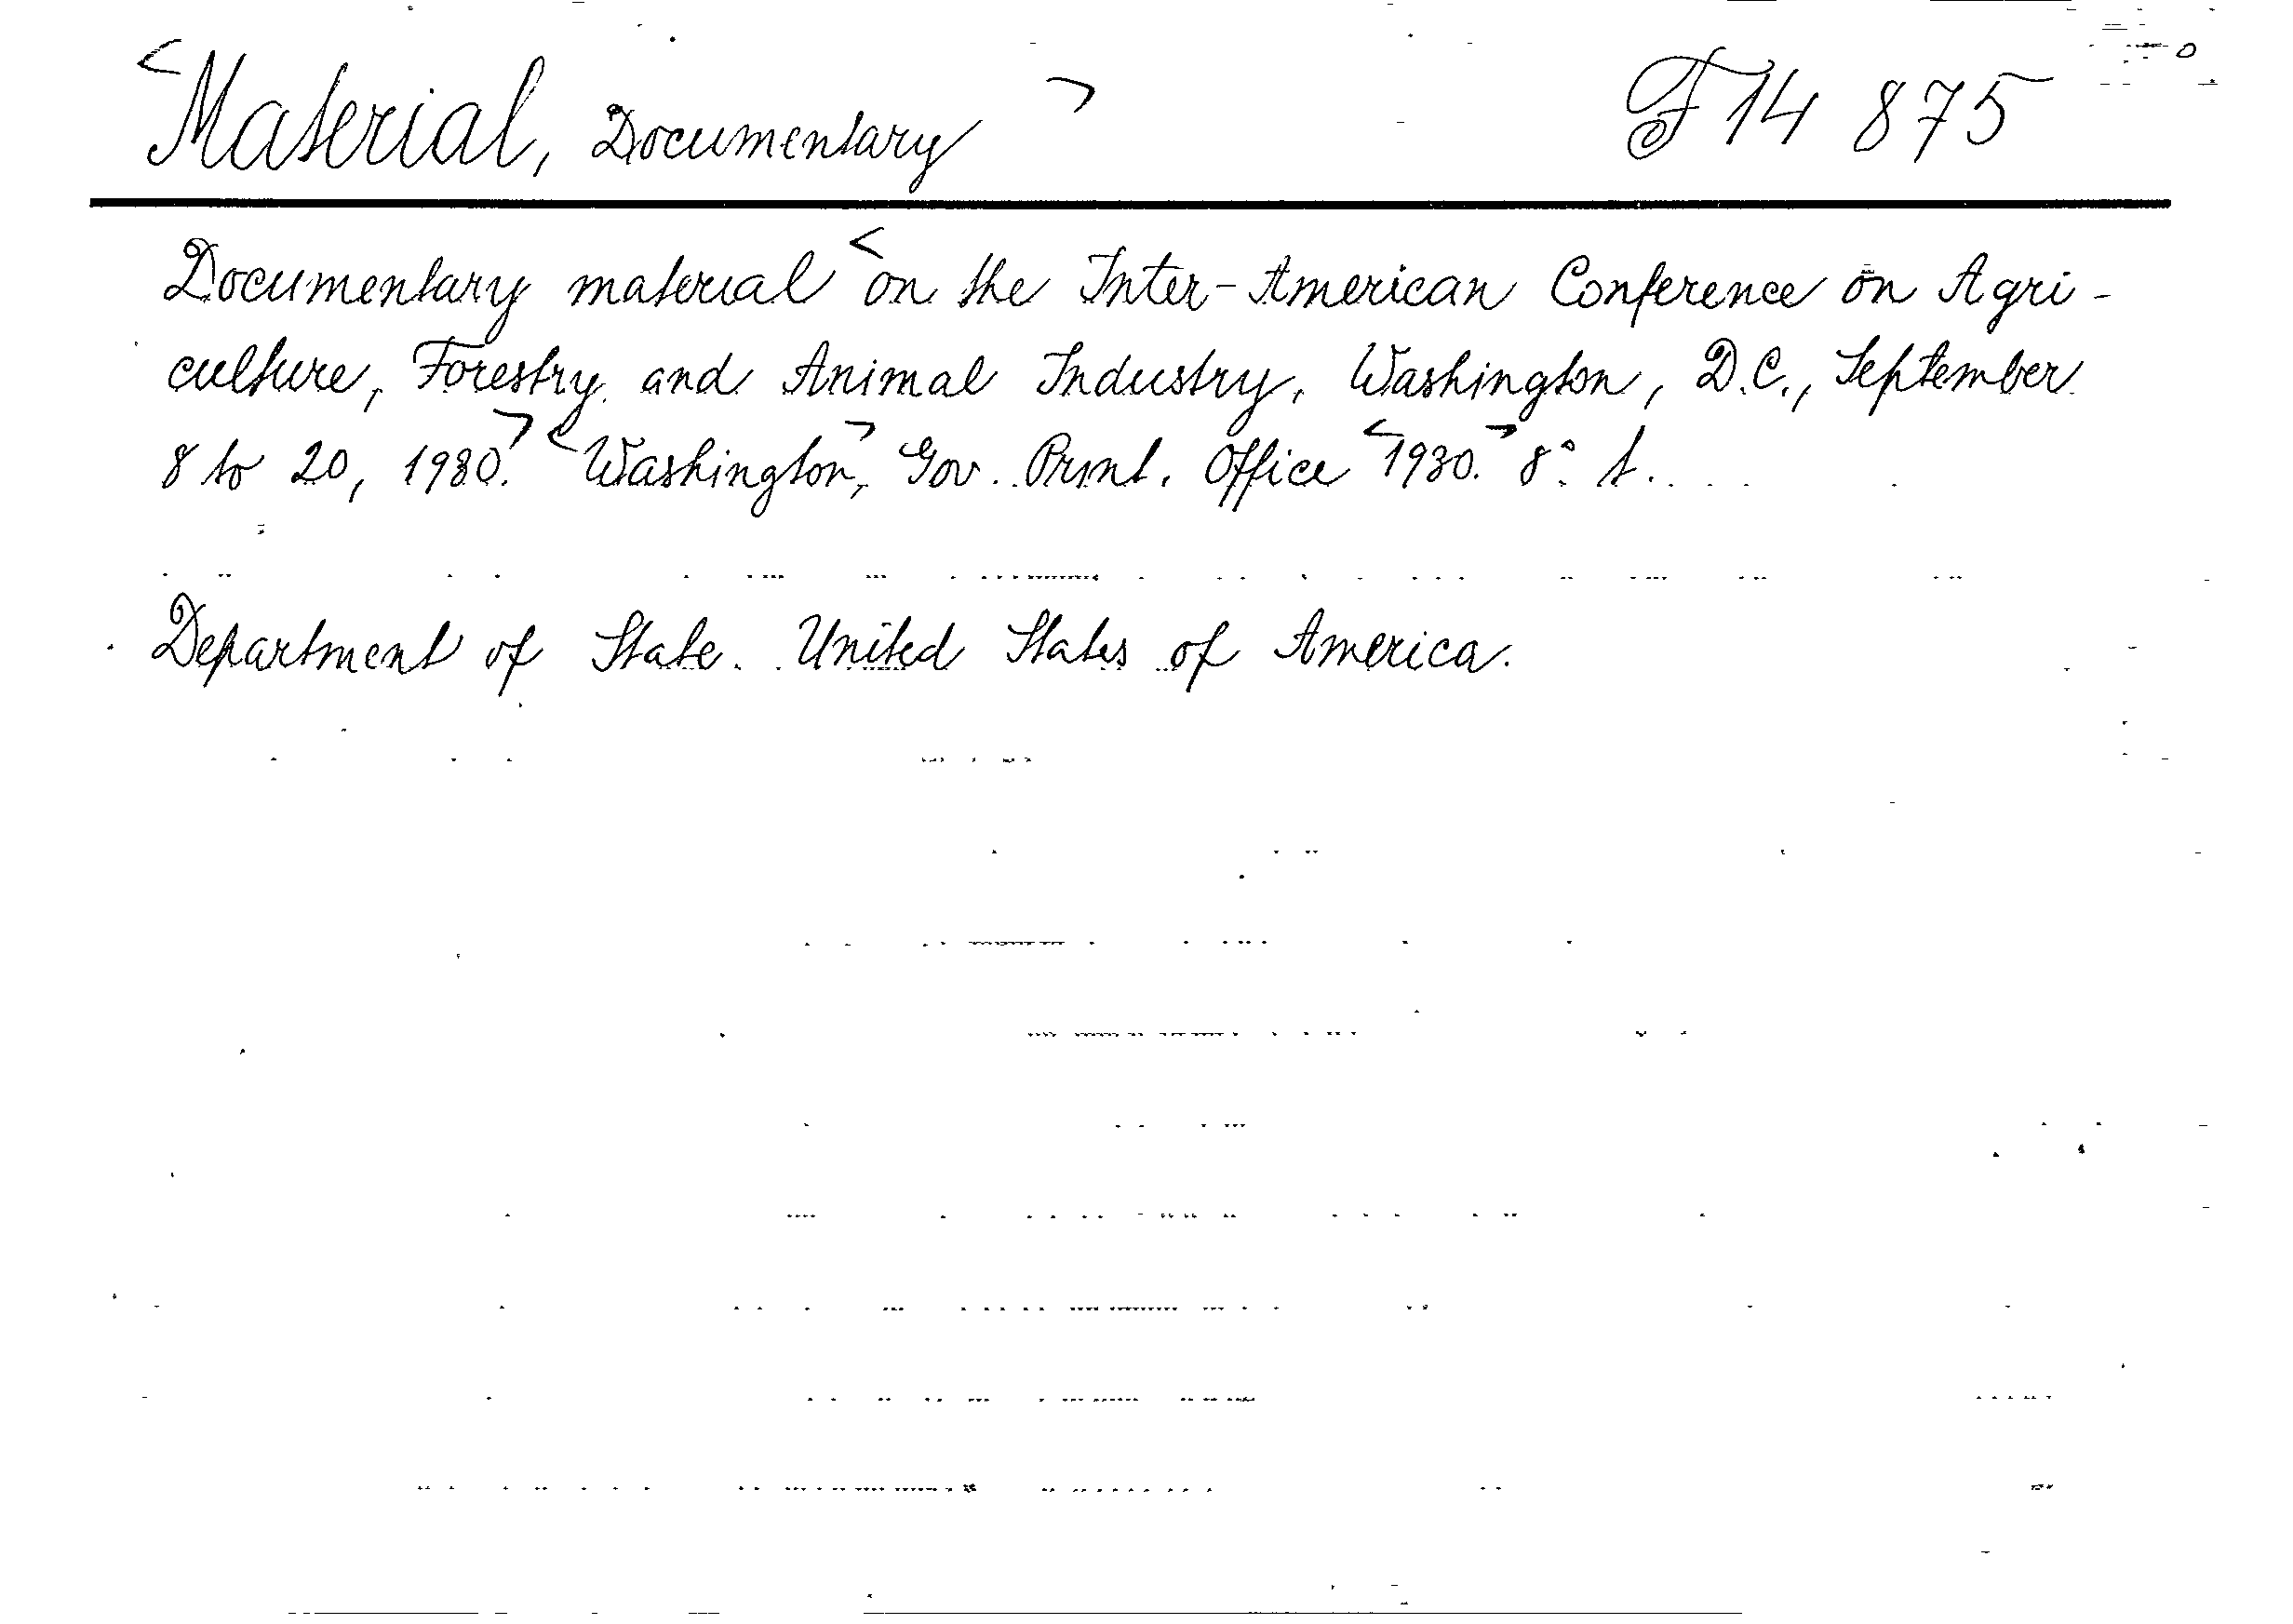 <Material, Documentary> F 14 875
Documentary material <on the Inter-American Conference on Agri-
culture, Forestry and Animal Industry, Washington, D.C., September
8 to 20, 1930.> <Washington>, Gov. Print. Office <1930.> 8° t. . . .
Department of State. United States of America.